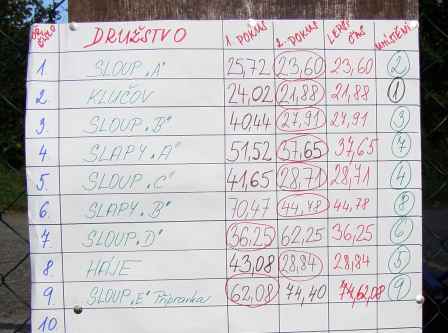 ST. ČÍSLO DRUŽSTVO 1. POKUS 2. POKUS LEPŠÍ ČAS UMÍSTĚNÍ
1. SLOUP „A" 25,72 23,60 23,60 2
2. KLUČOV 24,02 21,88 21,88 1
3. SLOUP „B" 40,44 27,91 27,91 3
4 SLAPY „A" 51,52 37,65 37,65 7
5. SLOUP „C" 41,65 28,71 28,71 4
6. SLAPY „B" 70,47 44,78 44,78 8
7 SLOUP „D" 36,25 62,25 36,25 6
8 HÁJE 43,08 28,84 28,84 5
9 SLOUP „E" Přípravka 62,08 74,40 62,08 9
10